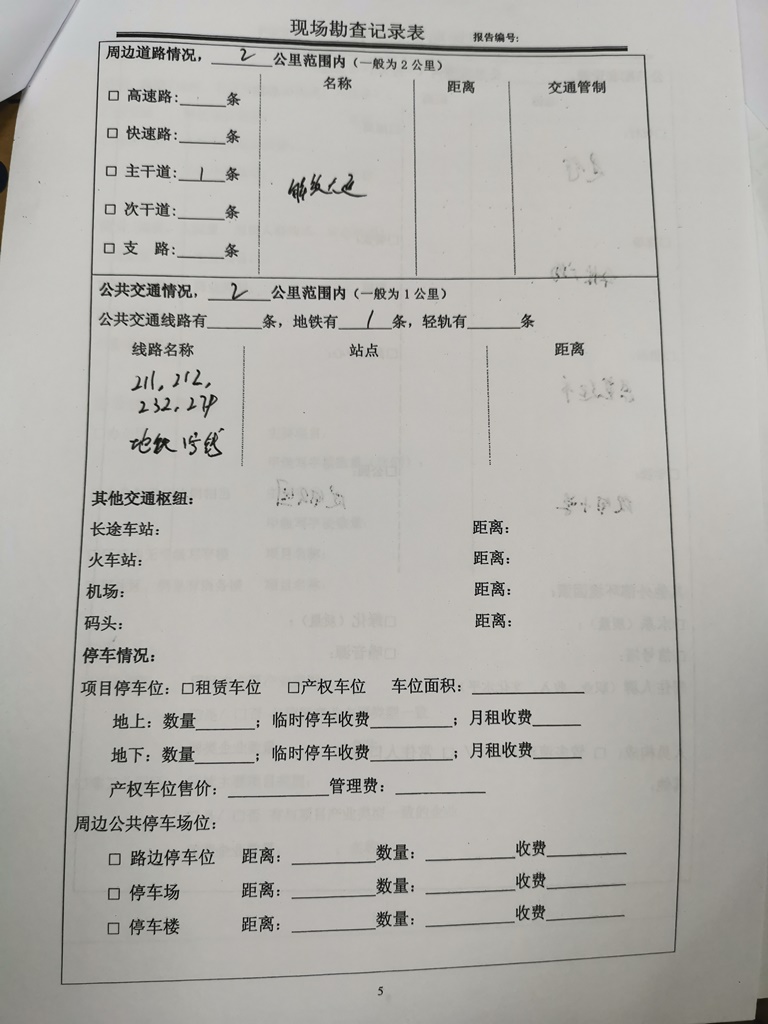 现场勘查记录表 报告编号:
周边道路情况，__2__公里范围内（一般为2公里）
名称 距离 交通管制
□ 高速路:_____条
□ 快速路:_____条
□ 主干道:__1__条 解放大道
□ 次干道:_____条
□ 支 路:_____条
公共交通情况，__2__公里范围内（一般为1公里）
公共交通线路有______条，地铁有__1__条，轻轨有______条
线路名称 站点 距离
211, 212,
232, 
地铁1号线
其他交通枢纽：
长途车站： 距离：
火车站： 距离：
机场： 距离：
码头： 距离：
停车情况：
项目停车位：□租赁车位 □产权车位 车位面积：____________
地上：数量______；临时停车收费________；月租收费_____
地下：数量______；临时停车收费________；月租收费_____
产权车位售价：__________管理费：_________
周边公共停车场位：
□ 路边停车位 距离：________数量：________收费_______
□ 停车场 距离：________数量：________收费_______
□ 停车楼 距离：________数量：________收费_______
5